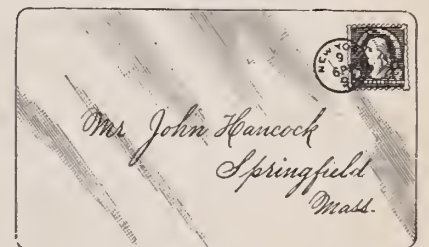 NEW YORK
9
Mr John Hancock
Springfield
Mass.